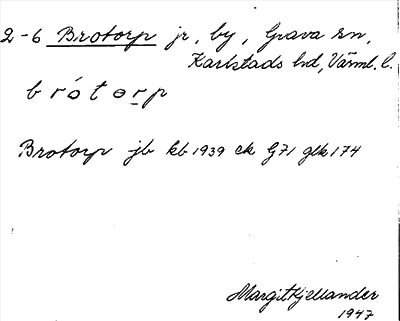 2-6 Brotorp jr, by, Grava sn,
Karlstads hd, Värml. l.
b r ó t o r p
Brotorp jb kb 1939 ek G71 glk 174
Margit Kjellander
1947